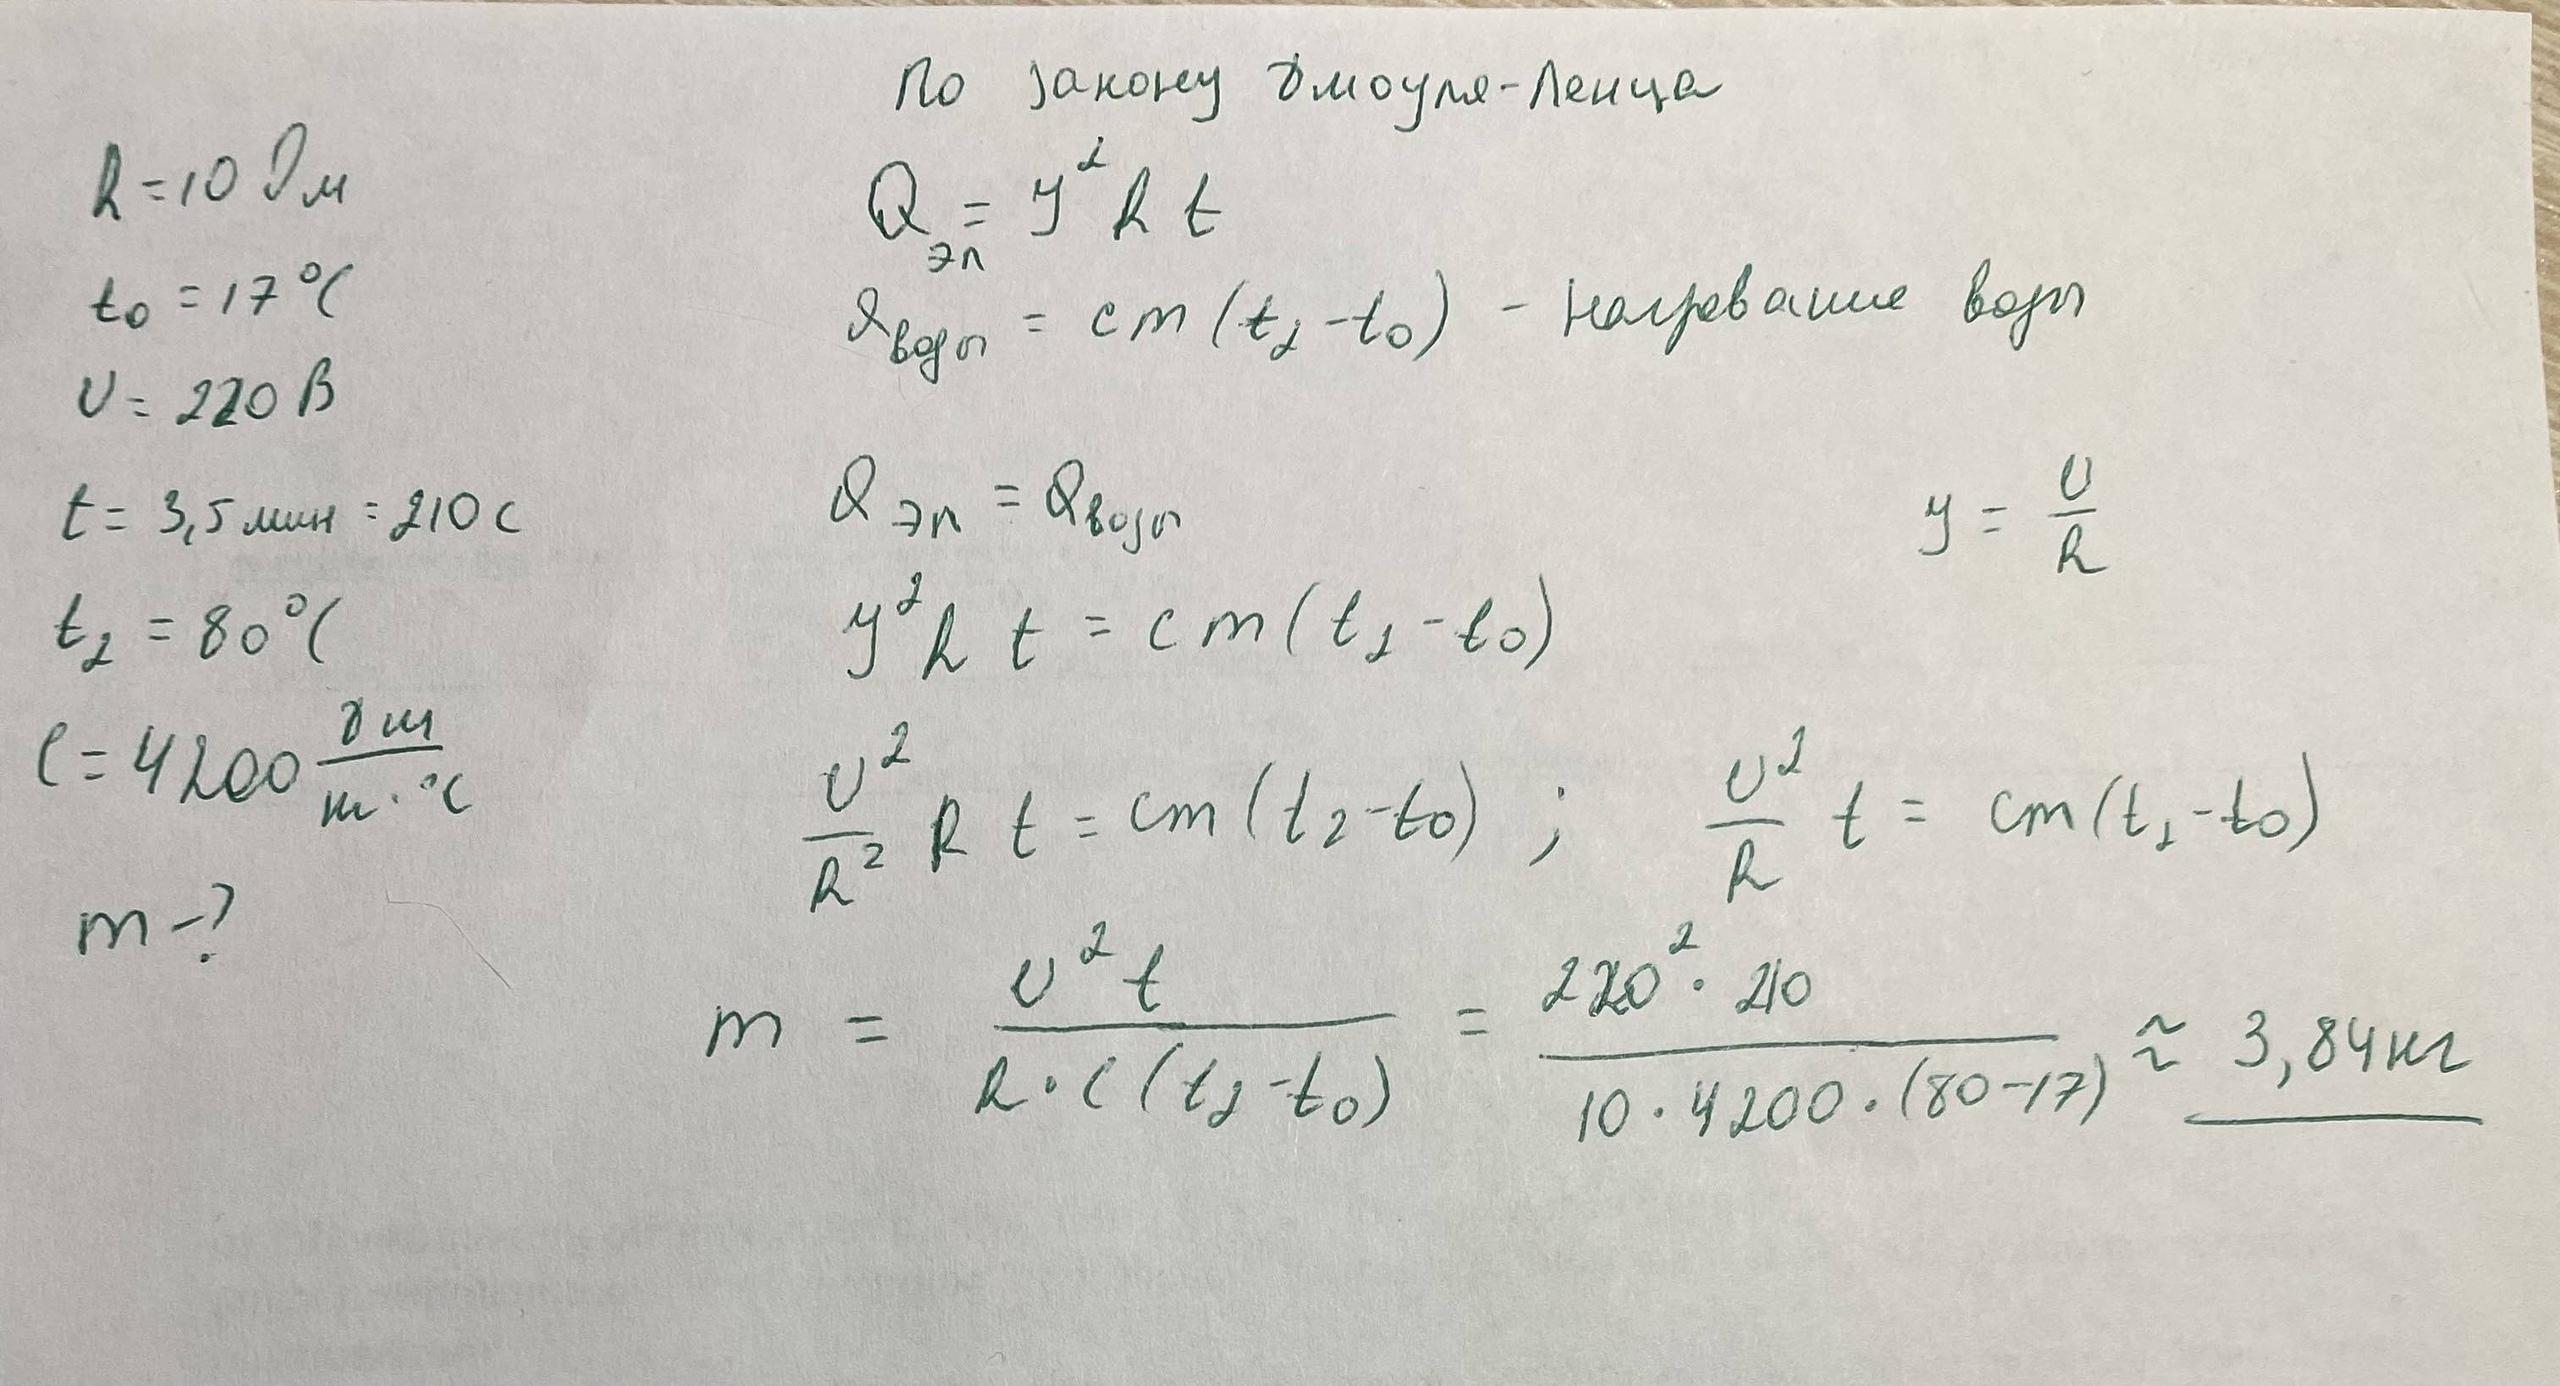 По закону Джоуля-Ленца
R = 10 Ом
t₀ = 17 °C
U = 220 В
t = 3,5 мин = 210 с
t₂ = 80 °C
c = 4200 Дж / кг · °C
m - ?
Qэл = У² R t
Qводы = cm (t₂ - t₀) - нагревание воды
Qэл = Qводы
У = U / R
У² R t = cm (t₂ - t₀)
U² / R² R t = cm (t₂ - t₀) ; U² / R t = cm (t₂ - t₀)
m = U² t / R · c (t₂ - t₀) = 220² · 210 / 10 · 4200 · (80 - 17) ≈ 3,84 кг